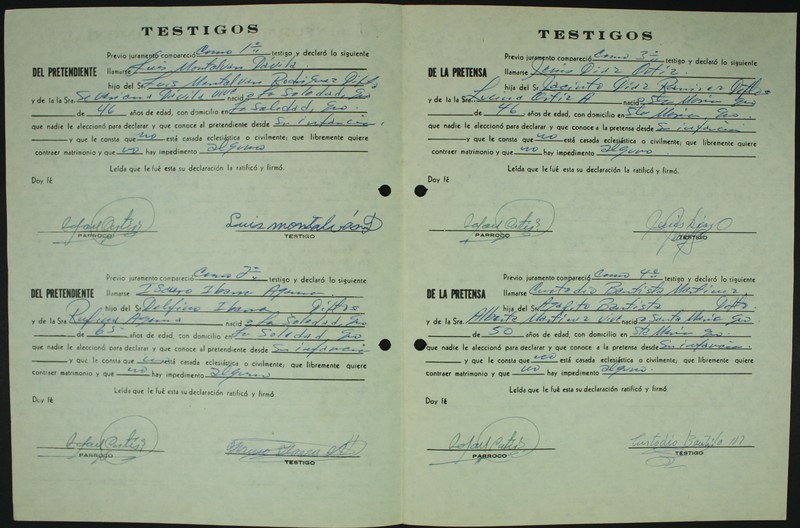 TESTIGOS
Previo juramento compareció Como 1º testigo y declaró lo siguiente
DEL PRETENDIENTE llamarse Luis Montalvan Dávila
hijo del Sr. Luis Montalvan Rodriguez
y de la Sra. Dávila nació La Soledad,
de 46 años de edad, con domicilio en La Soledad,
que nadie le aleccionó para declarar y que conoce al pretendiente desde Su infancia.
y que le consta que no está casada eclesiástica o civilmente; que libremente quiere
contraer matrimonio y que no hay impedimento alguno
Leída que le fué esta su declaración la ratificó y firmó.
Doy fé
PARROCO
Luis montalván D
TESTIGO
Previo juramento compareció Como 2º testigo y declaró lo siguiente
DEL PRETENDIENTE llamarse Ibarra
hijo del Sr. Delfino Ibarra
y de la Sra. Rufina nació La Soledad,
de 65 años de edad, con domicilio en La Soledad
que nadie le aleccionó para declarar y que conoce al pretendiente desde Su infancia
y que le consta que no está casada eclesiástica o civilmente; que libremente quiere
contraer matrimonio y que no hay impedimento alguno
Leída que le fué esta su declaración ratificó y firmó.
Doy fé
PARROCO
TESTIGO
TESTIGOS
Previo juramento compareció Como 3º testigo y declaró lo siguiente
DE LA PRETENSA llamarse Jesús Diaz Ortiz.
hijo del Sr. Jacinto Diaz Ramirez
y de la Sra. Ortiz nació Sta Maria
de 46 años de edad, con domicilio en Sta Maria
que nadie le aleccionó para declarar y que conoce a la pretensa desde Su infancia
y que le consta que no está casada eclesiástica o civilmente; que libremente quiere
contraer matrimonio y que no hay impedimento alguno
Leída que le fué esta su declaración la ratificó y firmó.
Doy fé
PARROCO
TESTIGO
Previo juramento compareció Como 4º testigo y declaró lo siguiente
DE LA PRETENSA llamarse Custodio Bautista Martinez
hijo del Sr. Bautista
y de la Sra. Martinez nació Santa Maria
de 50 años de edad, con domicilio en Sta Maria
que nadie le aleccionó para declarar y que conoce a la pretensa desde Su infancia.
y que le consta que no está casada eclesiástica o civilmente; que libremente quiere
contraer matrimonio y que no hay impedimento alguno.
Leída que le fué esta su declaración ratificó y firmó.
Doy fé
PARROCO
Custodio Bautista M
TESTIGO